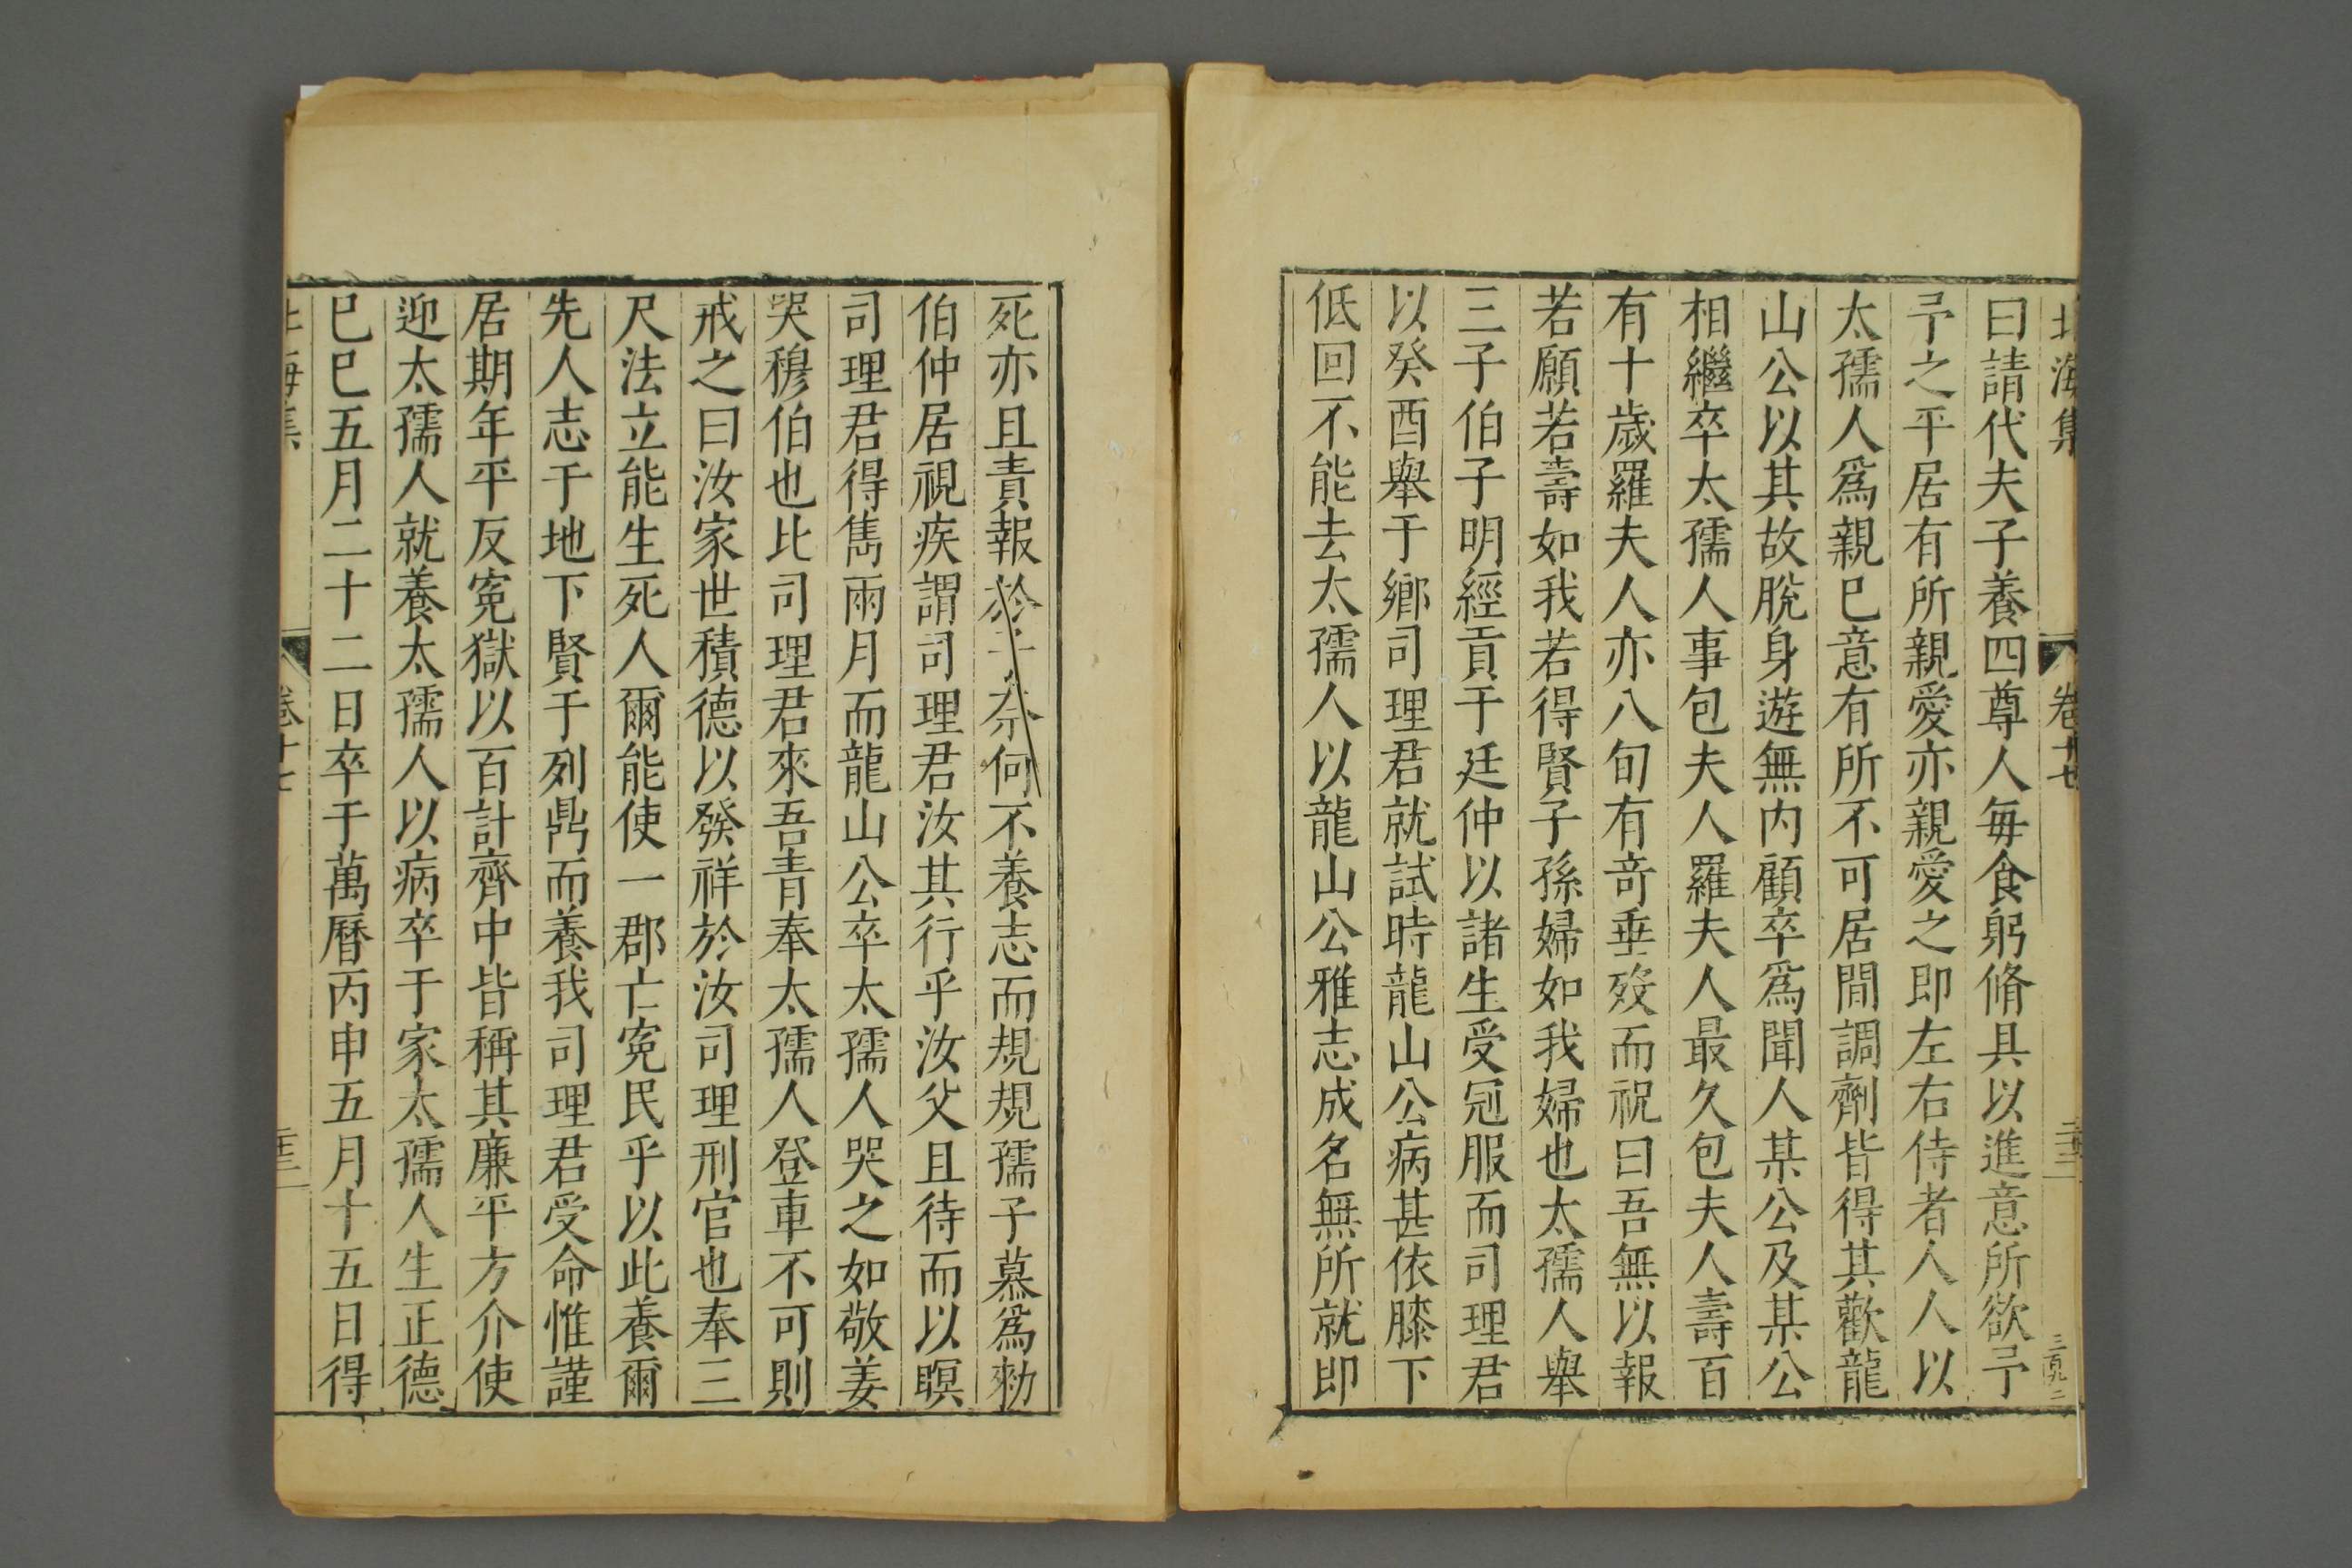 北海集 卷十七
曰請代夫子養四尊人每食躬脩具以進意所欲予
予之平居有所親愛亦親愛之即左右侍者人人以
太孺人爲親已意有所不可居間調劑皆得其歡龍
山公以其故脫身遊無内顧卒爲聞人某公及某公
相繼卒太孺人事包夫人羅夫人最久包夫人壽百
有十歲羅夫人亦八旬有竒垂歿而祝曰吾無以報
若願若壽如我若得賢子孫婦如我婦也太孺人舉
三子伯子明經貢于廷仲以諸生受冠服而司理君
以癸酉舉于鄉司理君就試時龍山公病甚依膝下
低回不能去太孺人以龍山公雅志成名無所就即
死亦且責報於子奈何不養志而規規孺子慕爲勑
伯仲居視疾謂司理君汝其行乎汝父且待而以瞑
司理君得雋兩月而龍山公卒太孺人哭之如敬姜
哭穆伯也比司理君來吾青奉太孺人登車不可則
戒之曰汝家世積德以發祥於汝司理刑官也奉三
尺法立能生死人爾能使一郡亡寃民乎以此養爾
先人志于地下賢于列鼎而養我司理君受命惟謹
居期年平反寃獄以百計齊中皆稱其廉平方介使
迎太孺人就養太孺人以病卒于家太孺人生正德
已巳五月二十二日卒于萬曆丙申五月十五日得
北海集 卷十七